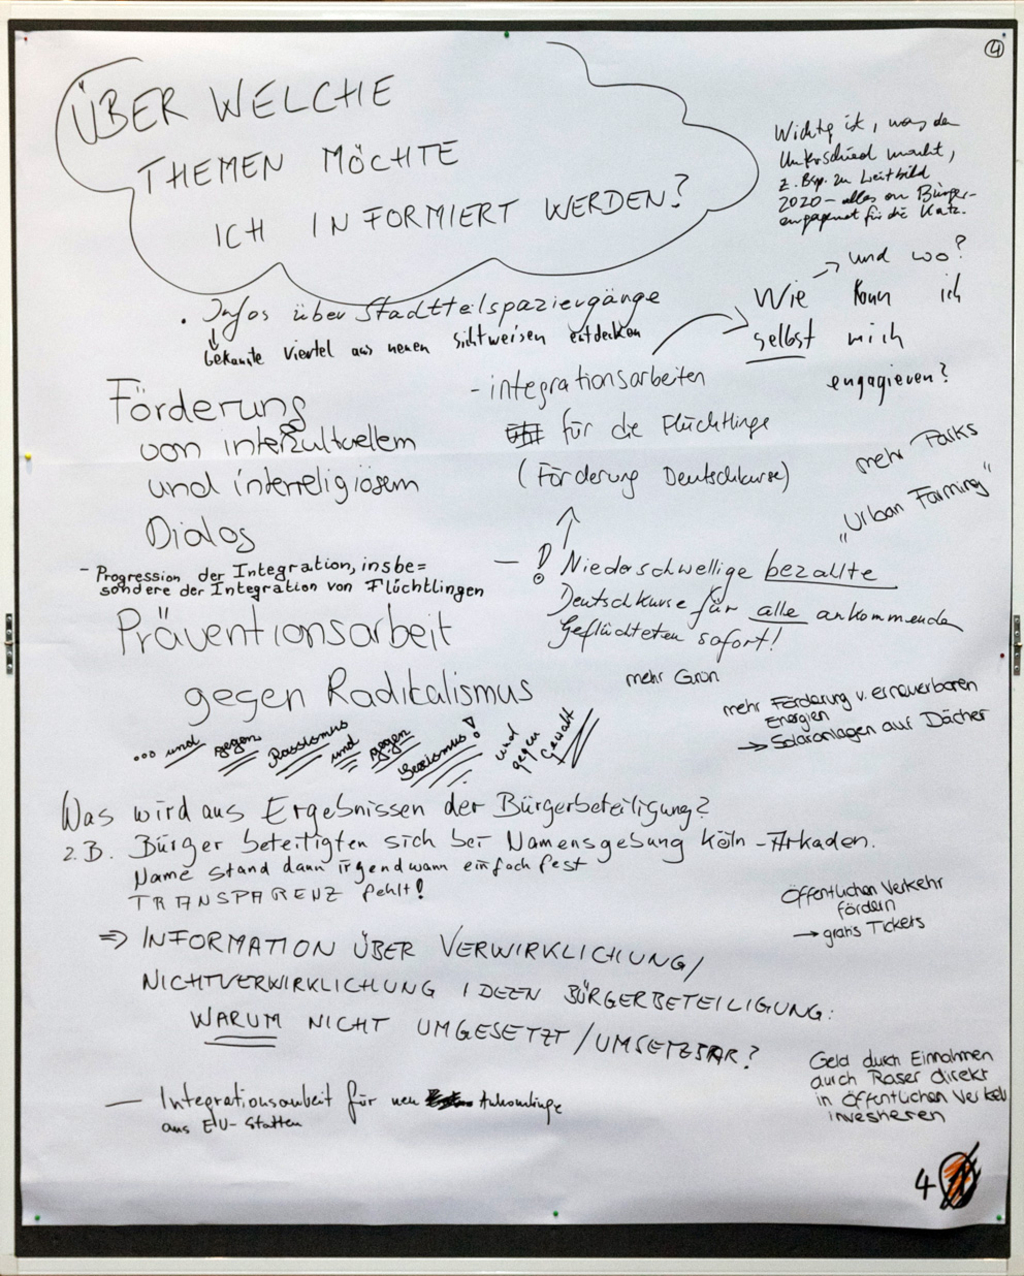 4
ÜBER WELCHE
THEMEN MÖCHTE
ICH INFORMIERT WERDEN?
Wichtig ist, was den
Unterschied macht,
z. Bsp. zu Leitbild
2020 – alles an Bürger-
engagemet für die Katz.
• Infos über Stadtteilspaziergänge
↓ bekannte Viertel aus neuen Sichtweisen entdecken
→ und wo?
Wie kann ich
selbst mich
engagieren?
Förderung
von interkultuellem
und interreligiösem
Dialog
- integrationsarbeiten
für die Flüchtlinge
(Förderung Deutschkurse)
mehr Parks
"Urban Farming"
- Progression der Integration, insbe=
sondere der Integration von Flüchtlingen
— ! Niederschwellige bezahlte
Deutschkurse für alle ankommenden
Geflüchteten sofort!
Präventionsarbeit
gegen Radikalismus
... und gegen Rassismus und gegen Sexismus! und gegen Gewalt
mehr Grün
mehr Förderung v. erneuerbaren
Energien
→ Solaranlagen auf Dächer
Was wird aus Ergebnissen der Bürgerbeteiligung?
z.B. Bürger beteiligten sich bei Namensgebung Köln-Arkaden.
Name stand dann irgendwann einfach fest
TRANSPARENZ fehlt!
Öffentlichen Verkehr
fördern
→ gratis Tickets
⇒ INFORMATION ÜBER VERWIRKLICHUNG/
NICHTVERWIRKLICHUNG IDEEN BÜRGERBETEILIGUNG:
WARUM NICHT UMGESETZT/UMSETZBAR?
Geld durch Einnahmen
durch Raser direkt
in Öffentlichen Verkeh
investieren
— Integrationsarbeit für neu Ankömlinge
aus EU-Staaten
4